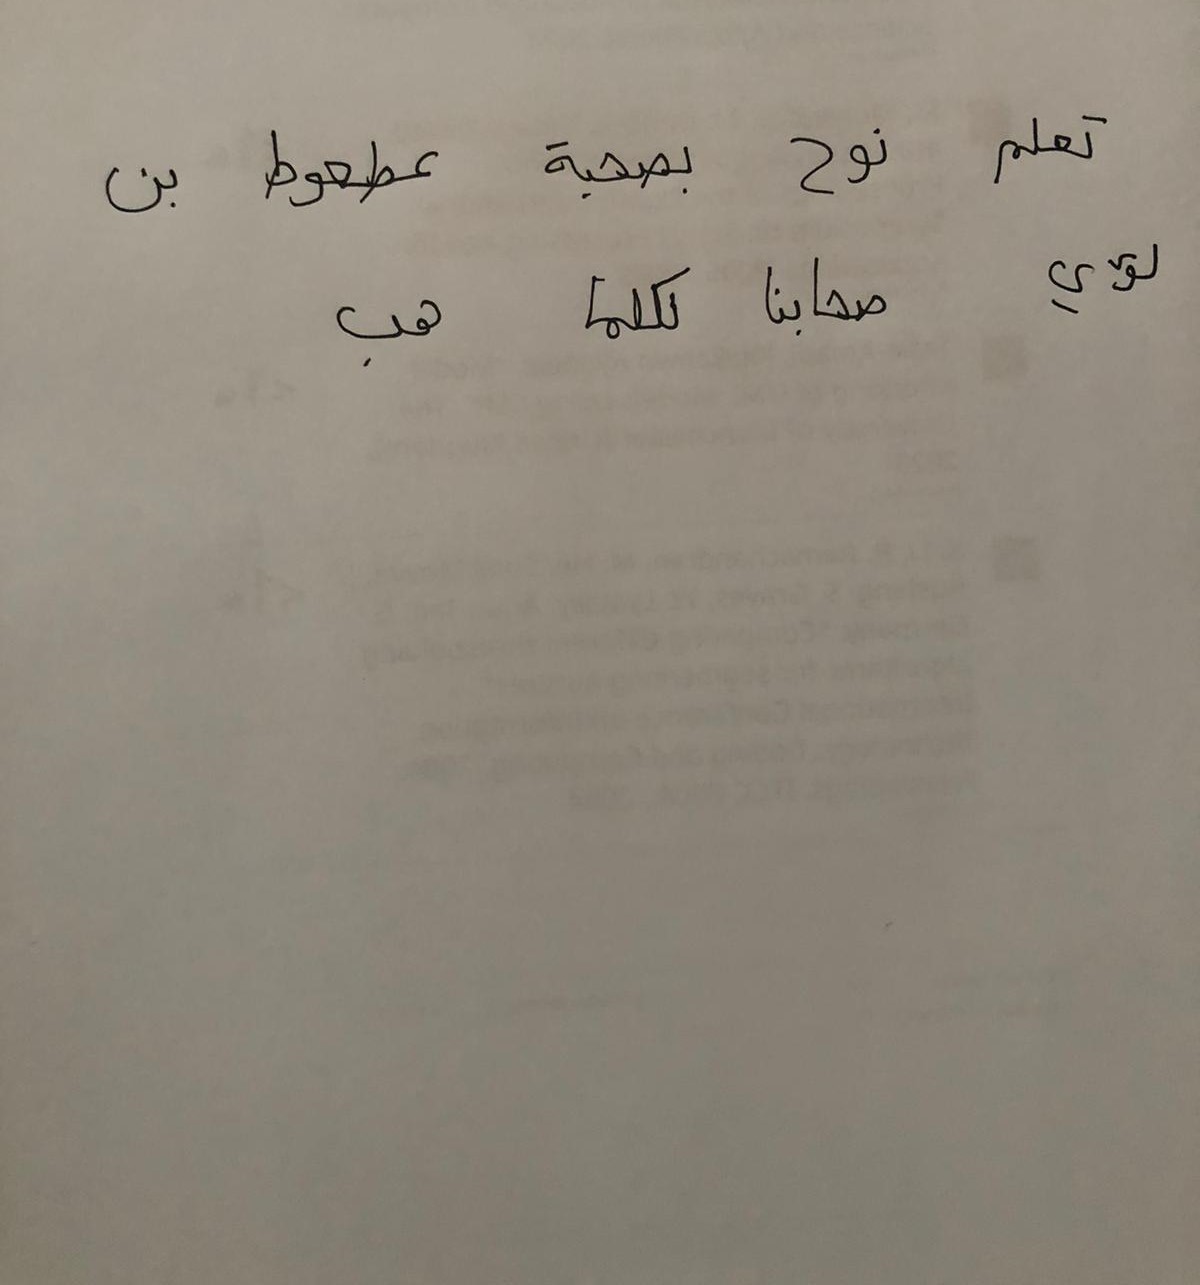 تعلم نوح بصحبة عطعوط بن
لؤي صحابنا لكلما هب